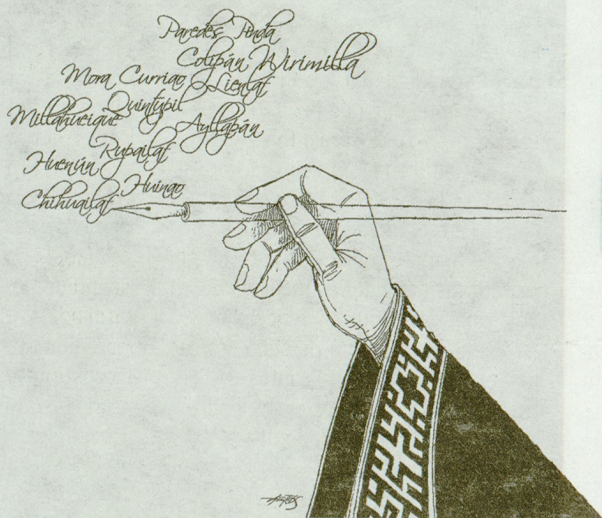 Paredes Pinda
Colipán Wirimilla
Mora Curriao Lienlaf
Quintupil
Millahueique Ayllapán
Rupailaf
Huenún
Huinao
Chihuailaf